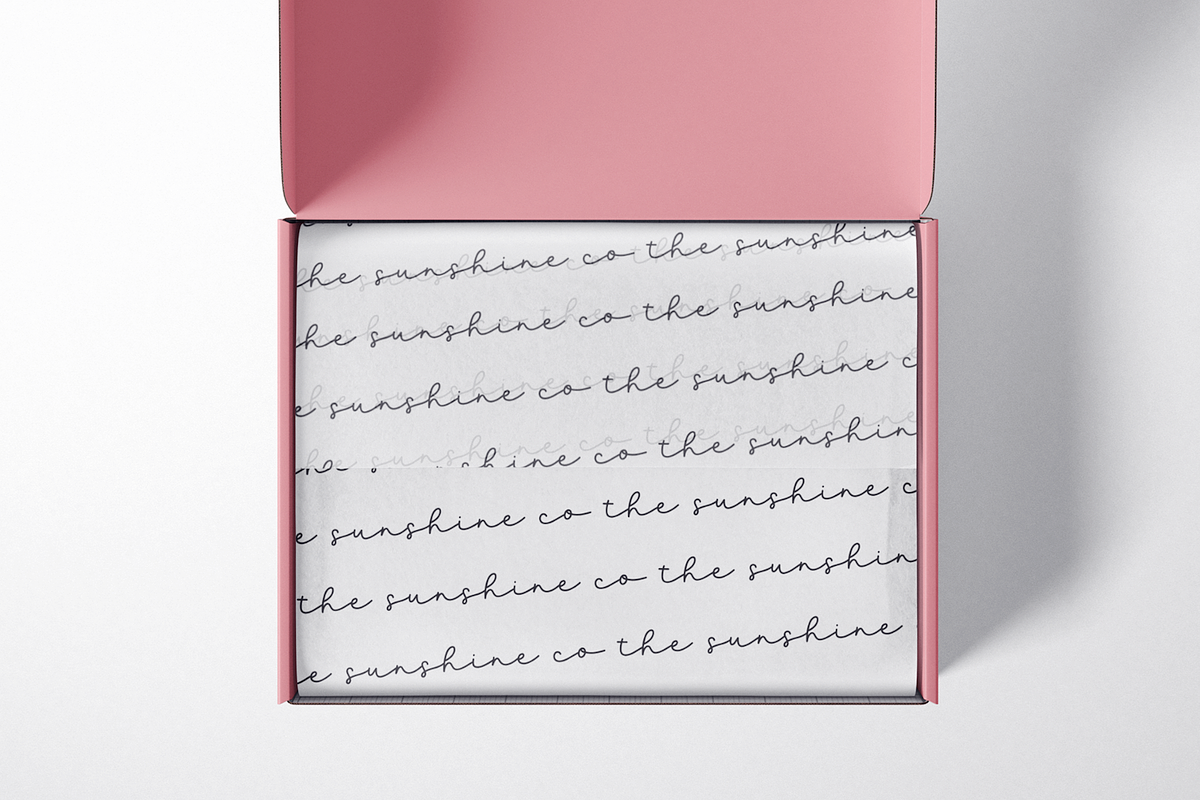 he sunshine co the sunshine
he sunshine co the sunshine
e sunshine co the sunshine c
shine co the sunshin
e sunshine co the sunshine c
the sunshine co the sunshin
e sunshine co the sunshine